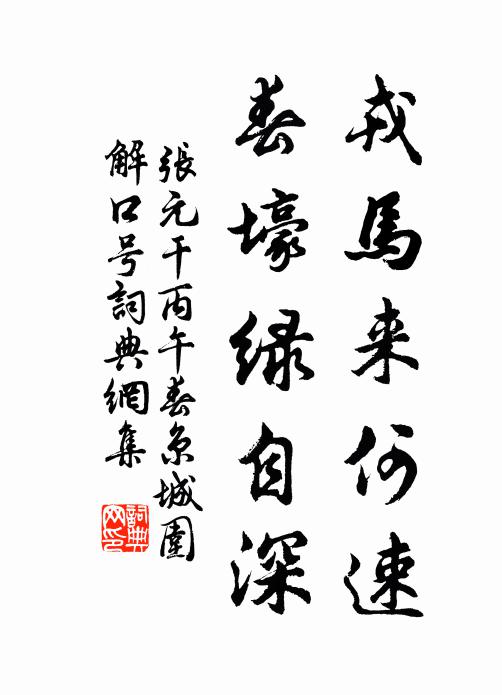 戎馬来何速
春壕绿自深
張元干丙午春京城圍
解口号詞典網集
詞典網印